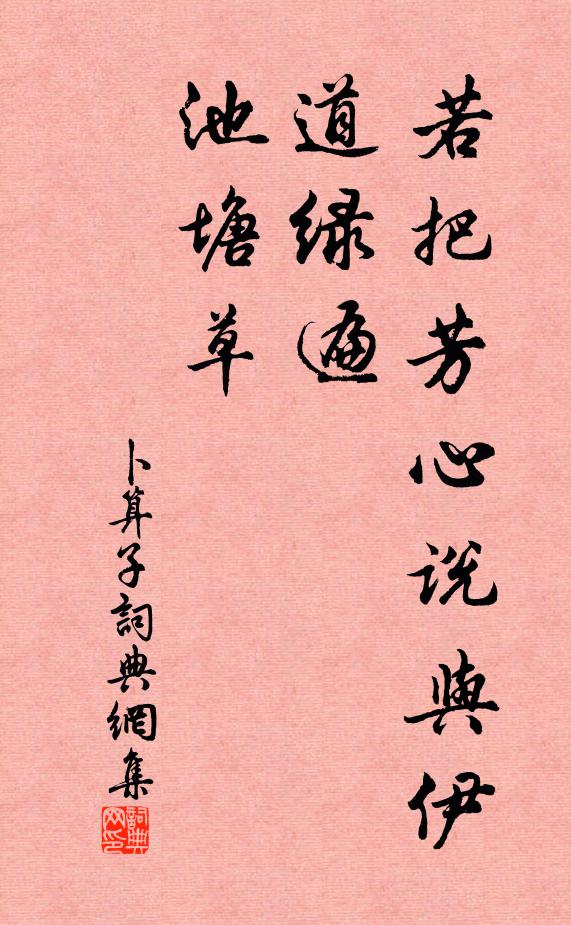 若把芳心説與伊
道緑遍
池塘草
卜算子詞典網集
詞典网印